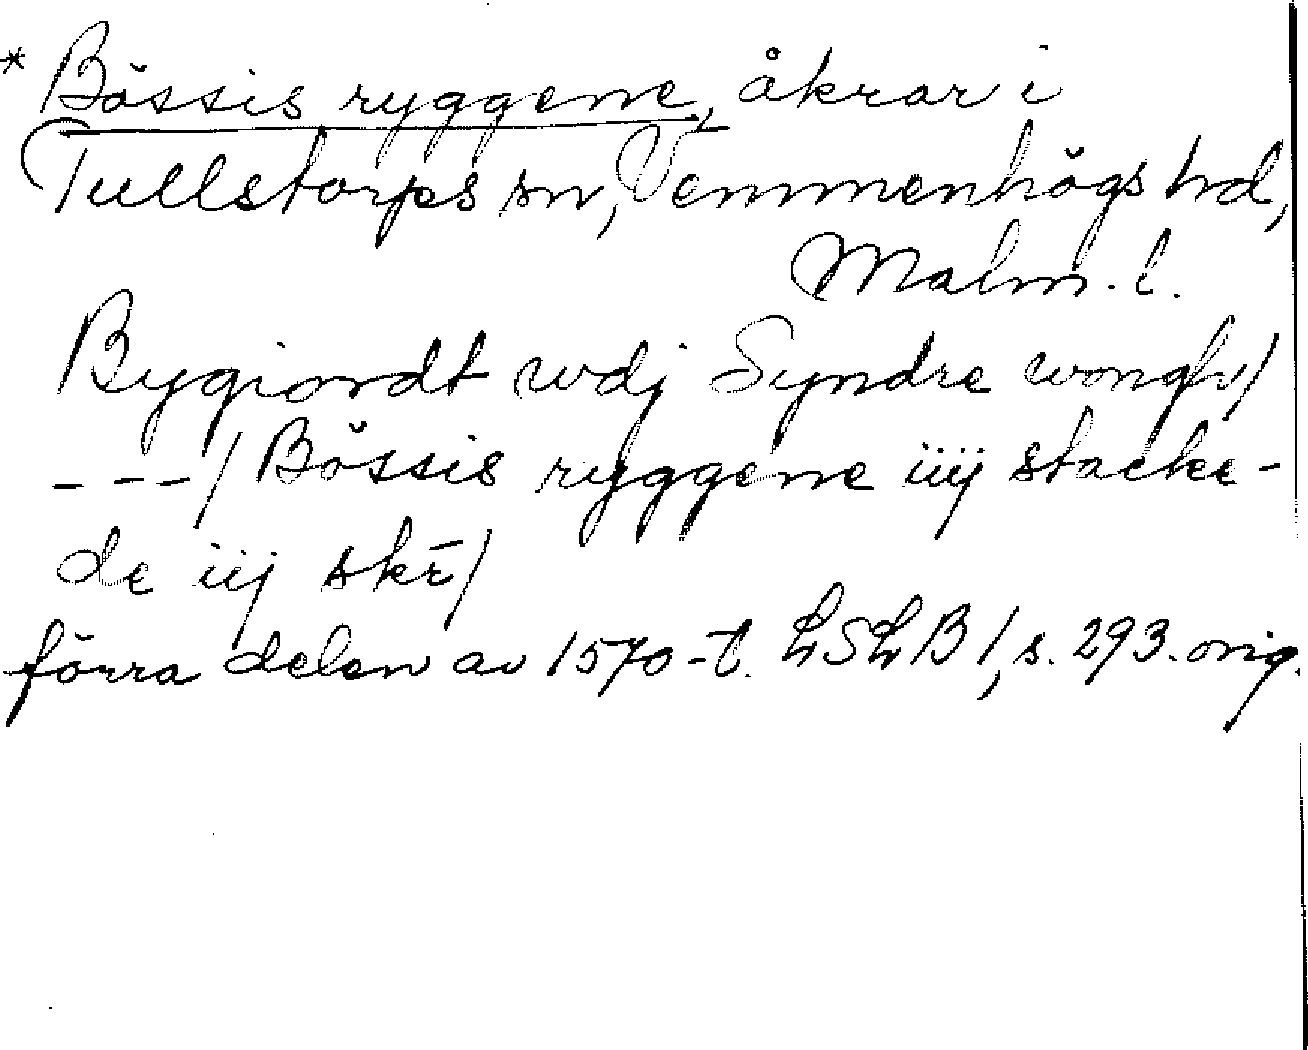 * Bössis ryggene, åkrar i
Tullstorps sn, Vemmenhögs hd,
Malm. l.
Bygiordt wdj Syndre wongh/
---/ Bössis ryggene iiij stacke-
de iij skē/
förra delen av 1570-t. LSLB 1, s. 293. orig.